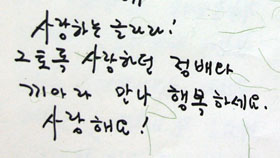 사랑하는 글라라!
그토록 사랑하던 정배타
끼아라 만나 행복하세요.
사랑해요!